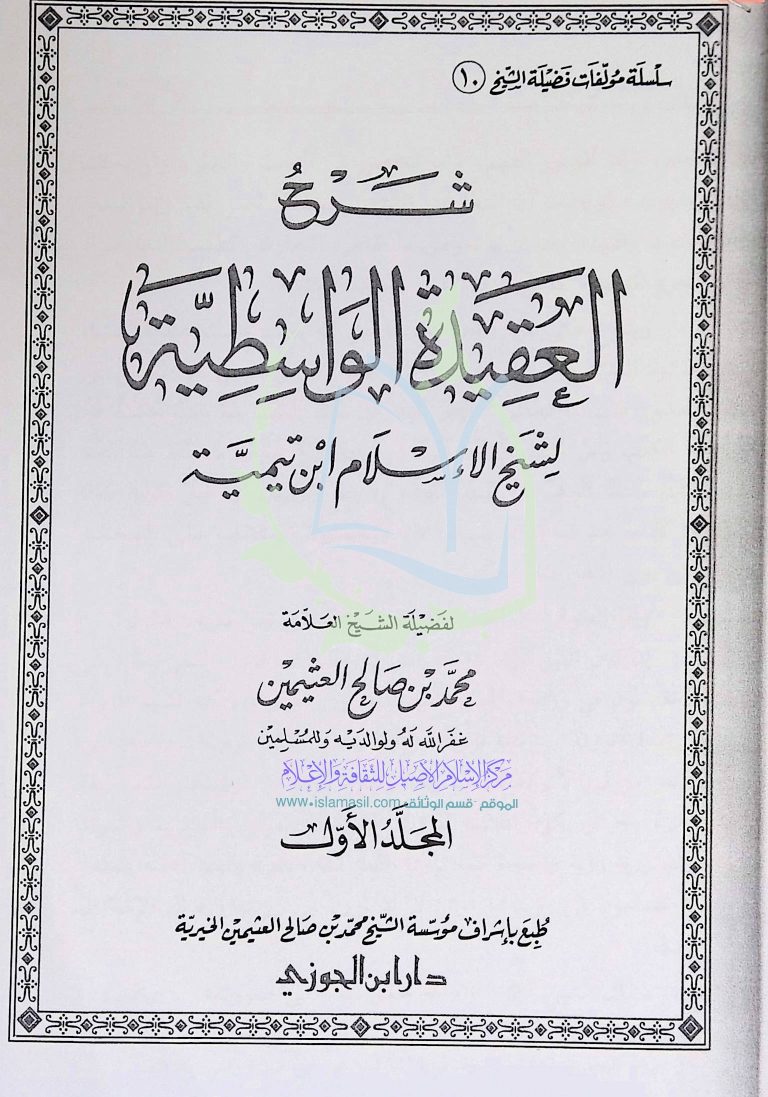 سلسلة مؤلفات فضيلة الشيخ (١٠)
شَرْحُ
العَقِيدَةِ الوَاسِطِيَّة
لشيخ الإسلام ابن تيميَّة
لفَضيلَة الشيخ العَلّامَة
محمَّد بن صَالح العثيمين
غفَر الله لَهُ ولوالديه وللمُسْلِمين
مركز الإسلام الأصيل للثقافة والإعلام
الموقع - قسم الوثائق - www.islamasil.com
المجلَّدُ الأَوّل
طُبِعَ بإشراف مؤسّسة الشيخ محمّد بن صَالح العثيمين الخيريّة
دار ابن الجوزي